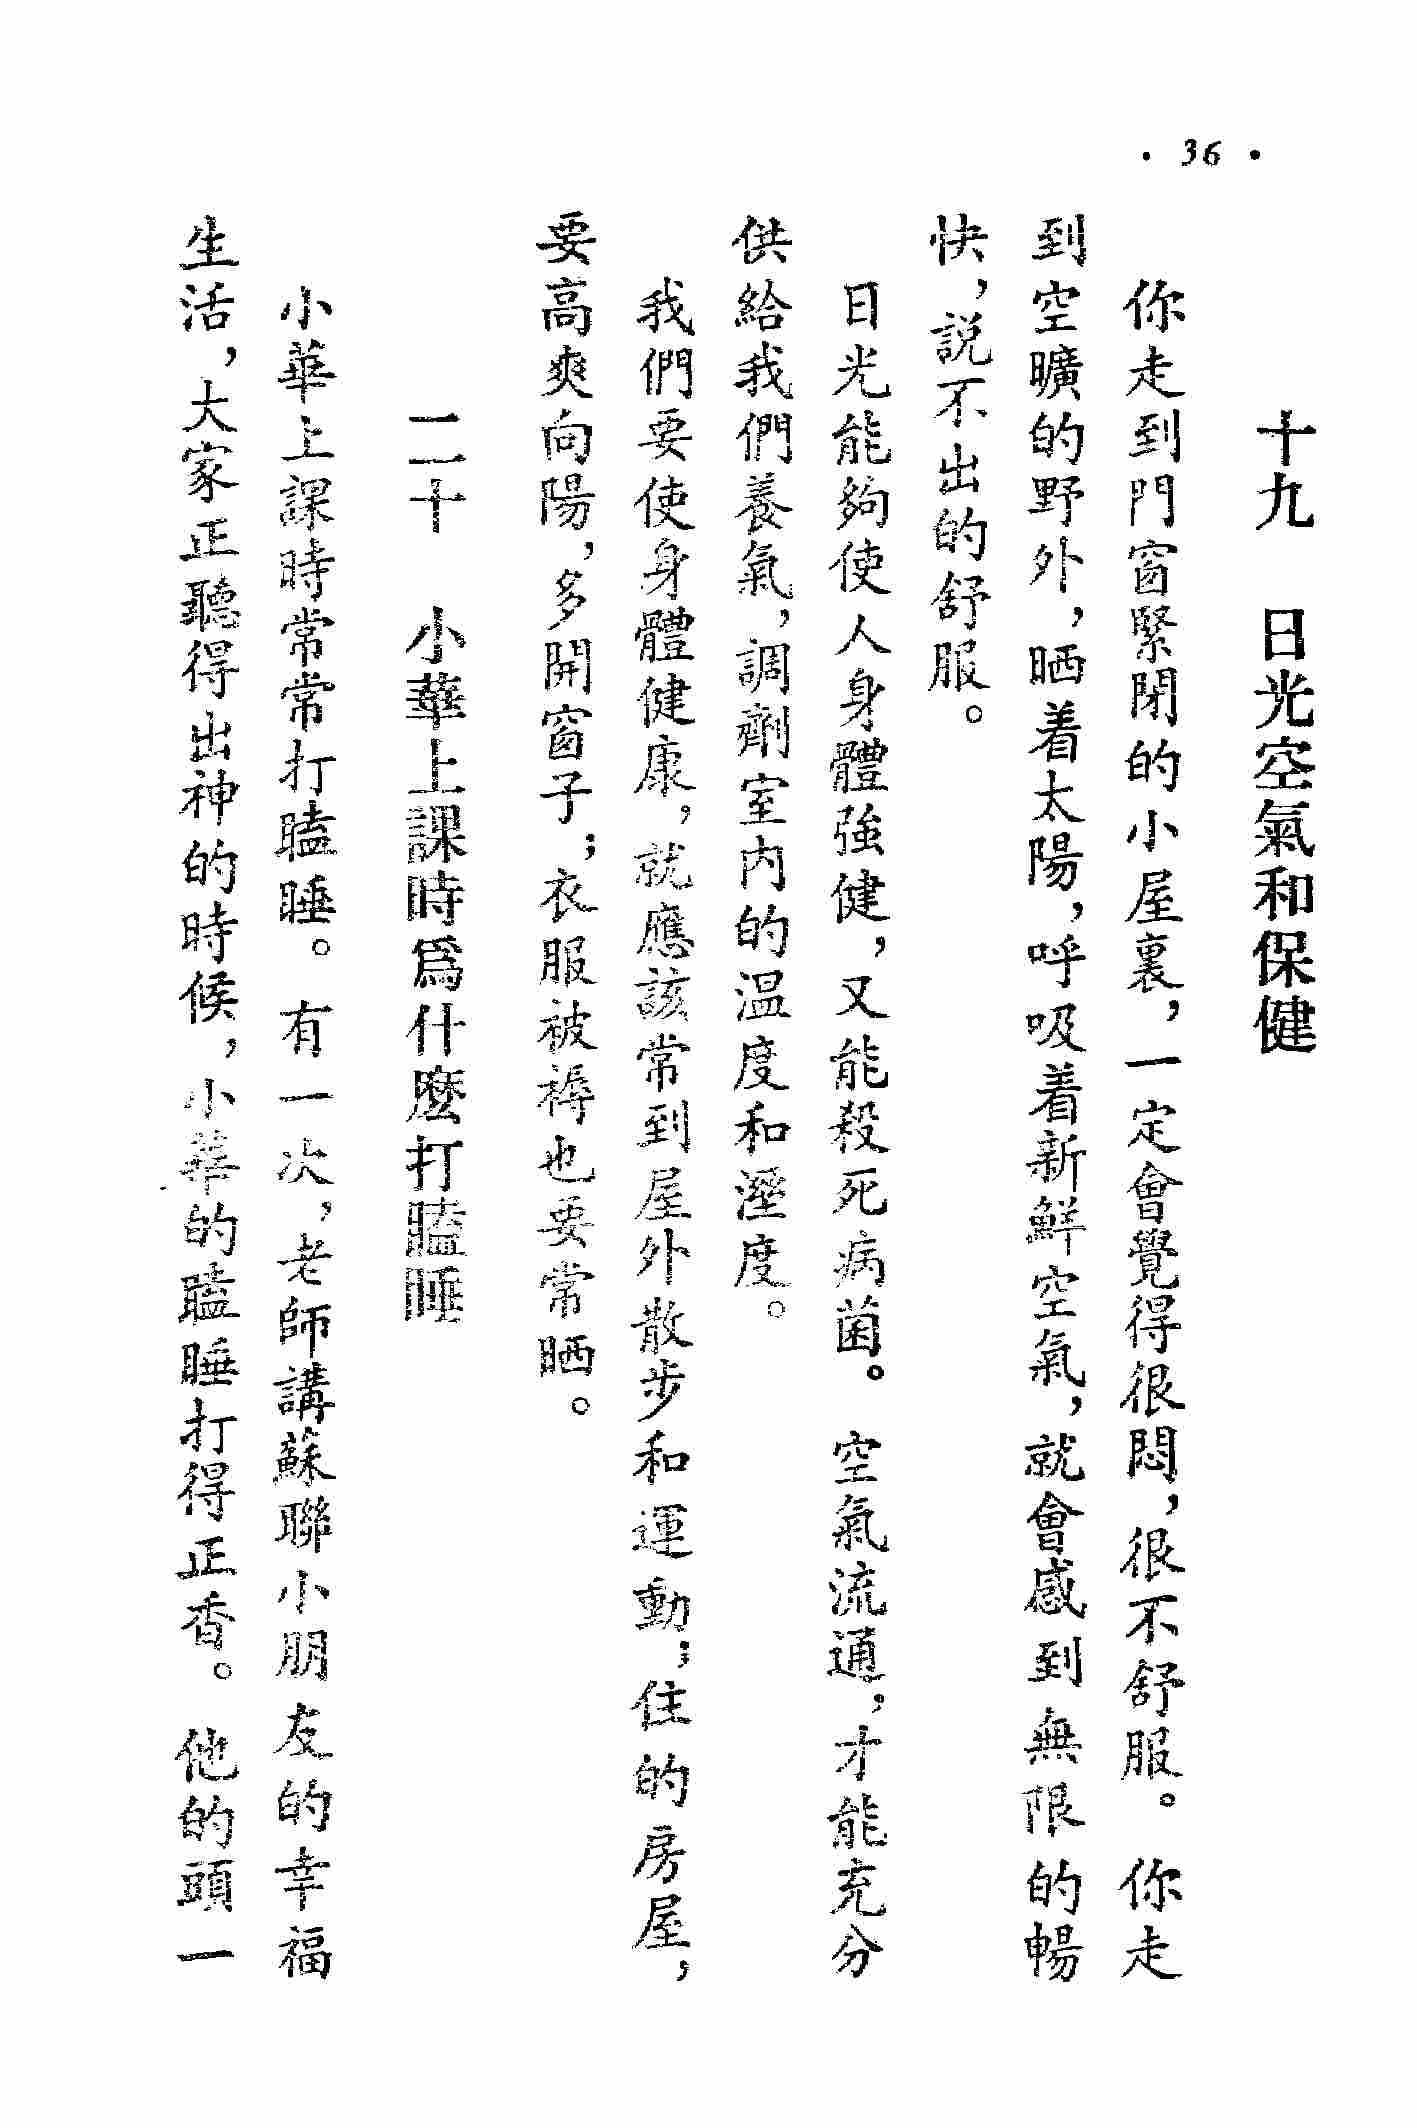 · 36 ·
十九　日光空氣和保健
你走到門窗緊閉的小屋裏，一定會覺得很悶，很不舒服。你走
到空曠的野外，晒着太陽，呼吸着新鮮空氣，就會感到無限的暢
快，説不出的舒服。
日光能夠使人身體強健，又能殺死病菌。空氣流通，才能充分
供給我們養氣，調劑室內的温度和溼度。
我們要使身體健康，就應該常到屋外散步和運動；住的房屋，
要高爽向陽，多開窗子；衣服被褥也要常晒。
二十　小華上課時爲什麽打瞌睡
小華上課時常常打瞌睡。有一次，老師講蘇聯小朋友的幸福
生活，大家正聽得出神的時候，小華的瞌睡打得正香。他的頭一